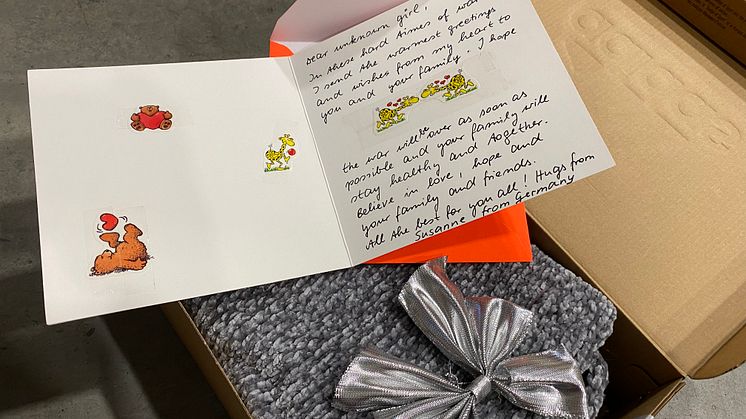 Dear unknown girl,
In these hard times of war
I send the warmest greetings
and wishes from my heart to
you and your family. I hope
the war will be over as soon as
possible and your family will
stay healthy and together.
Believe in love, hope and
your family and friends.
All the best for you all! Hugs from
Susanne from Germany